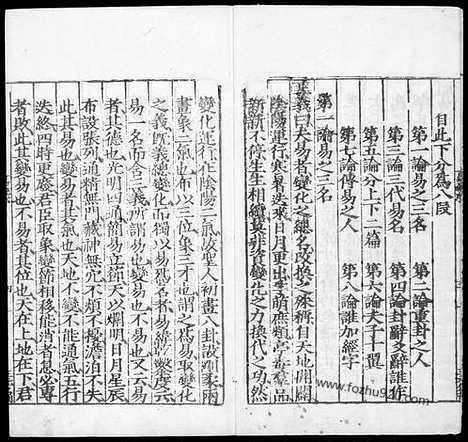 自此下分為八段
第一論易之三名
第二論重卦之人
第三論三代易名
第四論卦辭爻辭誰作
第五論分上下二篇
第六論夫子十翼
第七論傳易之人
第八論誰加經字
第一論易之三名
正義曰夫易者變化之總名改換之殊稱自天地開闢
陰陽運行寒暑迭來日月更出孚萌庶類亭毒羣品
新新不停生生相續莫非資變化之力換代之功然
變化運行在陰陽二氣故聖人初畫八卦設剛柔兩
畫象二氣也布以三位象三才也謂之為易取變化
之義既義總變化而獨以易為名者易緯乾鑿度云
易一名而含三義所謂易也變易也不易也又云易
者其德也光明四通簡易立節天以爛明日月星辰
布設張列通精無門藏神無穴不煩不擾澹泊不失
此其易也變易者其氣也天地不變不能通氣五行
迭終四時更廢君臣取象變節相移能消者息必專
者敗此其變易也不易者其位也天在上地在下君
www.fozhu920.com